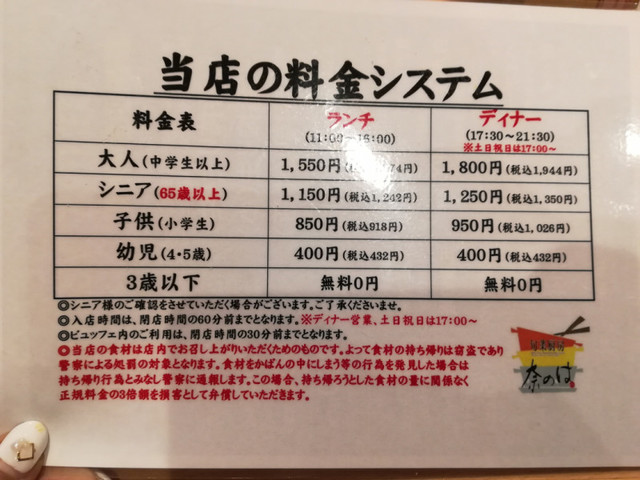 当店の料金システム
料金表 ランチ ディナー
(11:00～16:00) (17:30～21:30)
※土日祝日は17:00～
大人(中学生以上) 1,550円 1,800円(税込1,944円)
シニア(65歳以上) 1,150円(税込1,242円) 1,250円(税込1,350円)
子供(小学生) 850円(税込918円) 950円(税込1,026円)
幼児(4・5歳) 400円(税込432円) 400円(税込432円)
3歳以下 無料0円 無料0円
◎シニア様のご確認をさせていただく場合がございます。ご了承くださいませ。
◎入店時間は、閉店時間の60分前までとなります。※ディナー営業、土日祝日は17:00～
◎ビュッフェ内のご利用は、閉店時間の30分前までとなります。
◎当店の食材は店内でお召し上がりいただくためのものです。よって食材の持ち帰りは窃盗であり
警察による処罰の対象となります。食材をかばんの中にしまう等の行為を発見した場合は
持ち帰り行為とみなし警察に通報します。この場合、持ち帰ろうとした食材の量に関係なく
正規料金の3倍額を損害として弁償していただきます。
奈のは